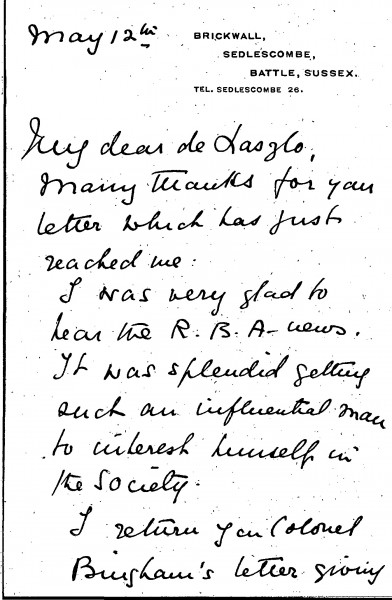 May 12th
BRICKWALL,
SEDLESCOMBE,
BATTLE, SUSSEX.
TEL. SEDLESCOMBE 26.
My dear de Laszlo,
Many thanks for your
letter which has just
reached me.
I was very glad to
hear the R.B.A. news.
It was splendid getting
such an influential man
to interest himself in
the Society.
I return you Colonel
Bingham's letter giving